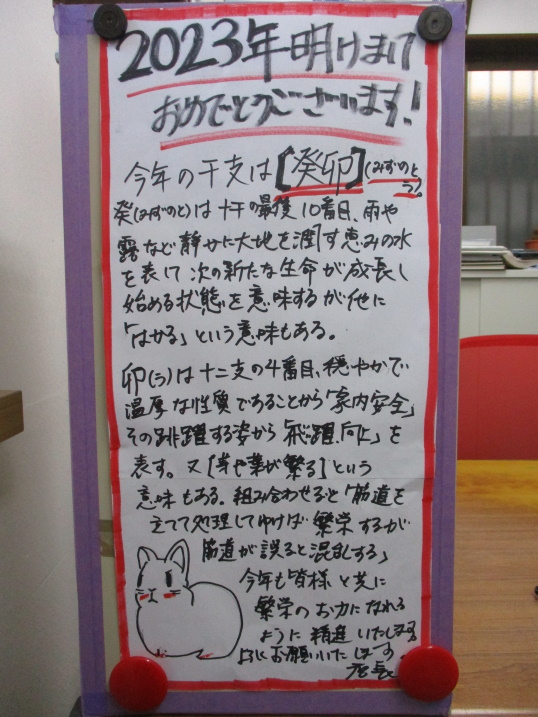 2023年明けまして
おめでとうございます!
今年の干支は【癸卯】(みずのと
う)。
癸(みずのと)は十干の最後10番目、雨や
露など静かに大地を潤す恵みの水
を表して次の新たな生命が成長し
始める状態を意味するが他に
「はかる」という意味もある。
卯(う)は十二支の4番目、穏やかで
温厚な性質であることから「家内安全」
その跳躍する姿から「飛躍、向上」を
表す。又【芽や葉が繁る】という
意味もある。組み合わせると「筋道を
立てて処理してゆけば繁栄するが
筋道が誤ると混乱する」
今年も皆様と共に
繁栄のお力になれる
ように精進いたします。
お願いいたします